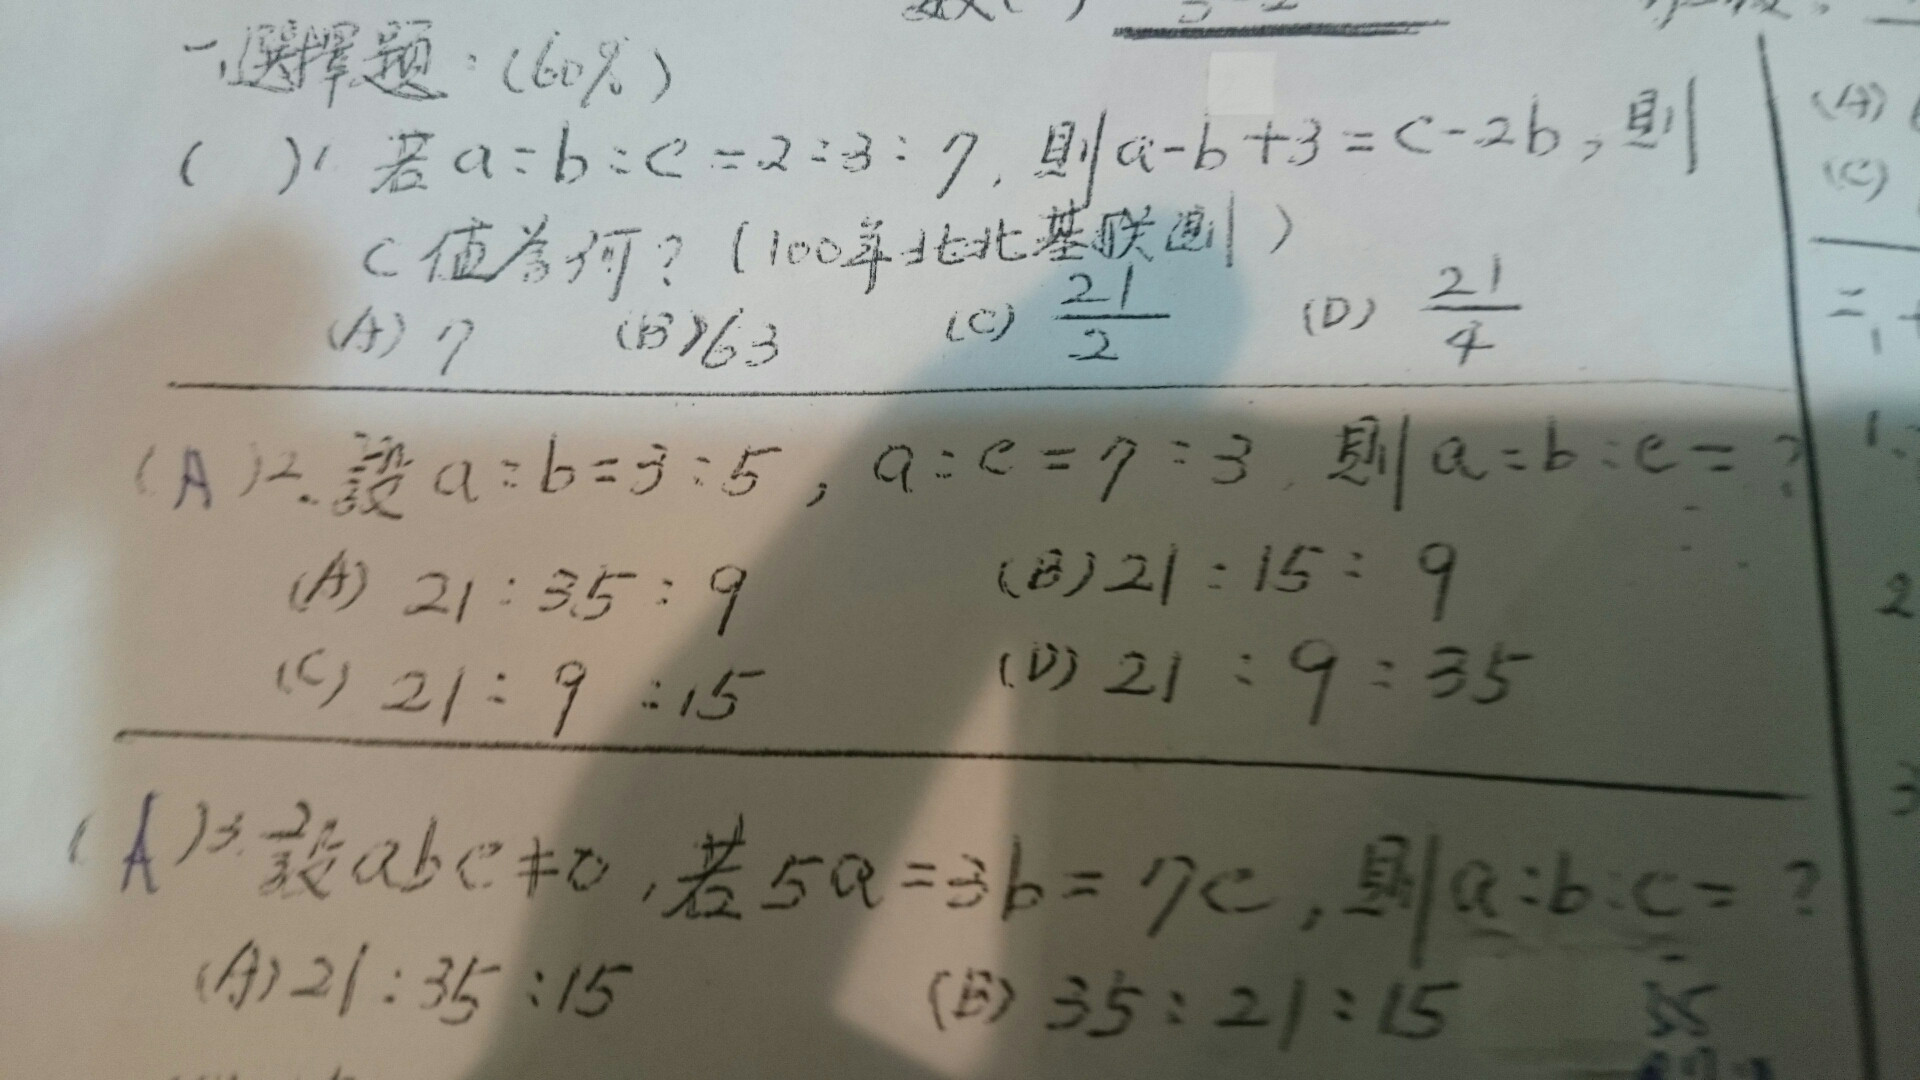 一、選擇題：(60%)
( )1. 若a:b:c=2:3:7, 則a-b+3=c-2b, 則
c值為何？(100年北北基聯測)
(A) 7 (B) 63 (C) 21/2 (D) 21/4
(A)2. 設a:b=3:5, a:c=7:3, 則a:b:c=?
(A) 21:35:9 (B) 21:15:9
(C) 21:9:15 (D) 21:9:35
(A)3. 設abc≠0, 若5a=3b=7c, 則a:b:c=?
(A) 21:35:15 (B) 35:21:15
(A)
(C)
1.
2
3
35